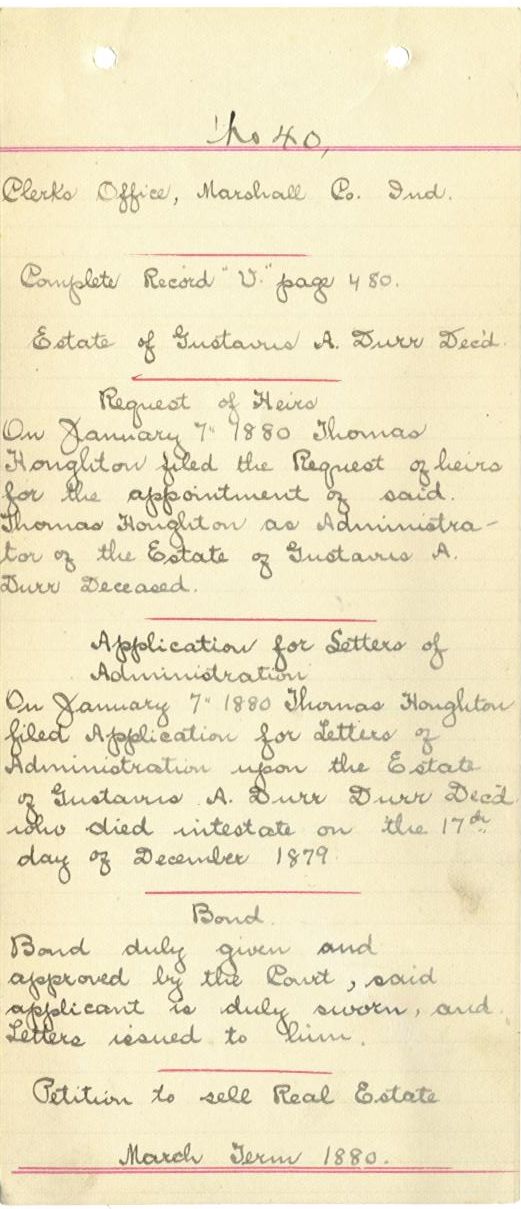 No 40,
Clerks Office, Marshall Co. Ind.
Complete Record "V." page 480.
Estate of Gustavus A. Durr Dec'd.
Request of Heirs
On January 7" 1880 Thomas
Houghton filed the Request of heirs
for the appointment of said.
Thomas Houghton as Administra-
tor of the Estate of Gustavus A.
Durr Deceased.
Application for Letters of
Administration
On January 7" 1880 Thomas Houghton
filed Application for Letters of
Administration upon the Estate
of Gustavus A. Durr Durr Dec'd
who died intestate on the 17th
day of December 1879.
Bond.
Bond duly given and
approved by the Court, said
applicant is duly sworn, and
Letters issued to him.
Petition to sell Real Estate
March Term 1880.